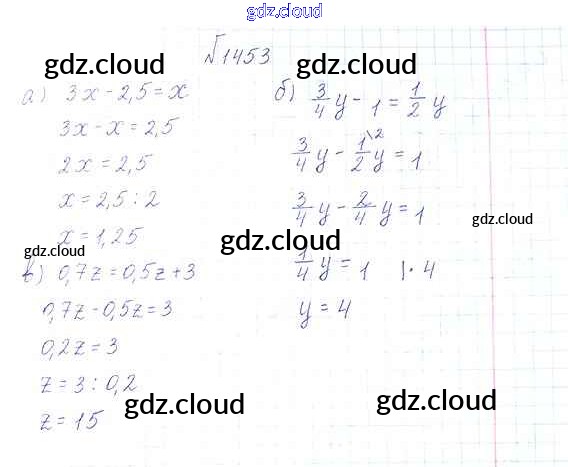 gdz.cloud
№1453
gdz.cloud
gdz.cloud
а) 3x - 2,5 = x
3x - x = 2,5
2x = 2,5
x = 2,5 : 2
x = 1,25
б) 3/4 y - 1 = 1/2 y
3/4 y - 1\2/2 y = 1
3/4 y - 2/4 y = 1
1/4 y = 1 |· 4
y = 4
gdz.cloud
gdz.cloud
gdz.cloud
в) 0,7z = 0,5z + 3
0,7z - 0,5z = 3
0,2z = 3
z = 3 : 0,2
z = 15
gdz.cloud
gdz.cloud